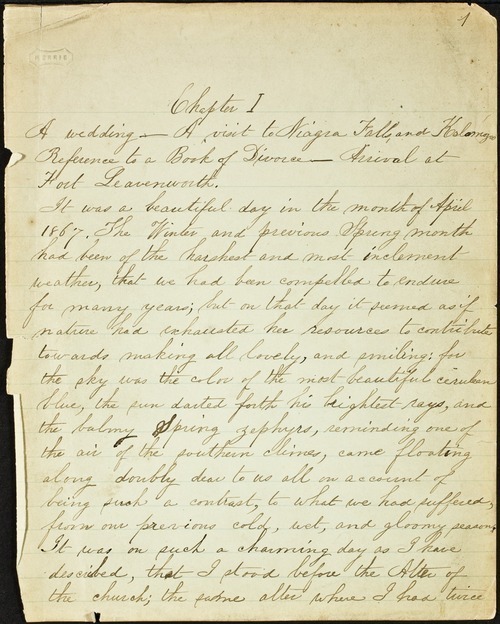 1
MORRIS
Chapter I
A wedding — A visit to Niagra Falls, and Kalamazoo
Reference to a Book of Divorce — Arrival at
Fort Leavenworth.
It was a beautiful day in the month of April
1867. The Winter and previous Spring month
had been of the harshest and most inclement
weather, that we had been compelled to endure
for many years; but on that day it seemed as if
nature had exhausted her resources to contribute
towards making all lovely, and smiling: for
the sky was the color of the most beautiful cerulean
blue, the sun darted forth his brightest rays, and
the balmy Spring zephyrs, reminding one of
the air of the southern climes, came floating
along doubly dear to us all on account of
being such a contrast, to what we had suffered,
from our previous cold, wet, and gloomy season,
It was on such a charming day as I have
described, that I stood before the Alter of
the church; the same alter where I had twice